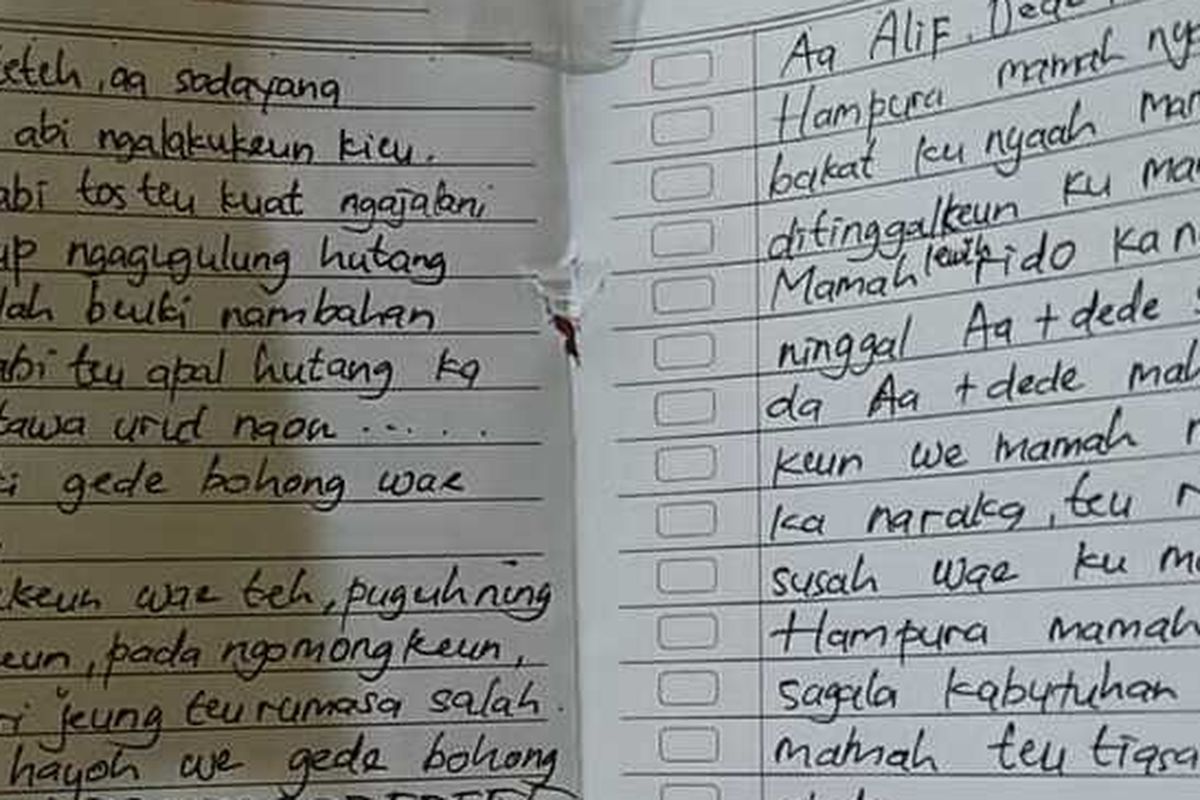 teteh, aa sadayana
abi ngalakukeun kieu.
abi tos teu kuat ngajalani
up ngagugulung hutang
lah beuki nambahan
abi teu apal hutang ka
tawa urid ngon ......
gede bohong wae
keun wae teh, puguhning
eun, pada ngomongkeun,
ri jeung teu rumasa salah.
hayoh we gede bohong
Aa Alif. Dede
Hampura mamah
bakat ku nyaah
ditinggalkeun ku
Mamah lewih rido
ninggal Aa + dede
da Aa + dede
keun we mamah
ka naraka, teu
susah wae ku
Hampura mamah
sagala kabutuhan
mamah teu tiasa